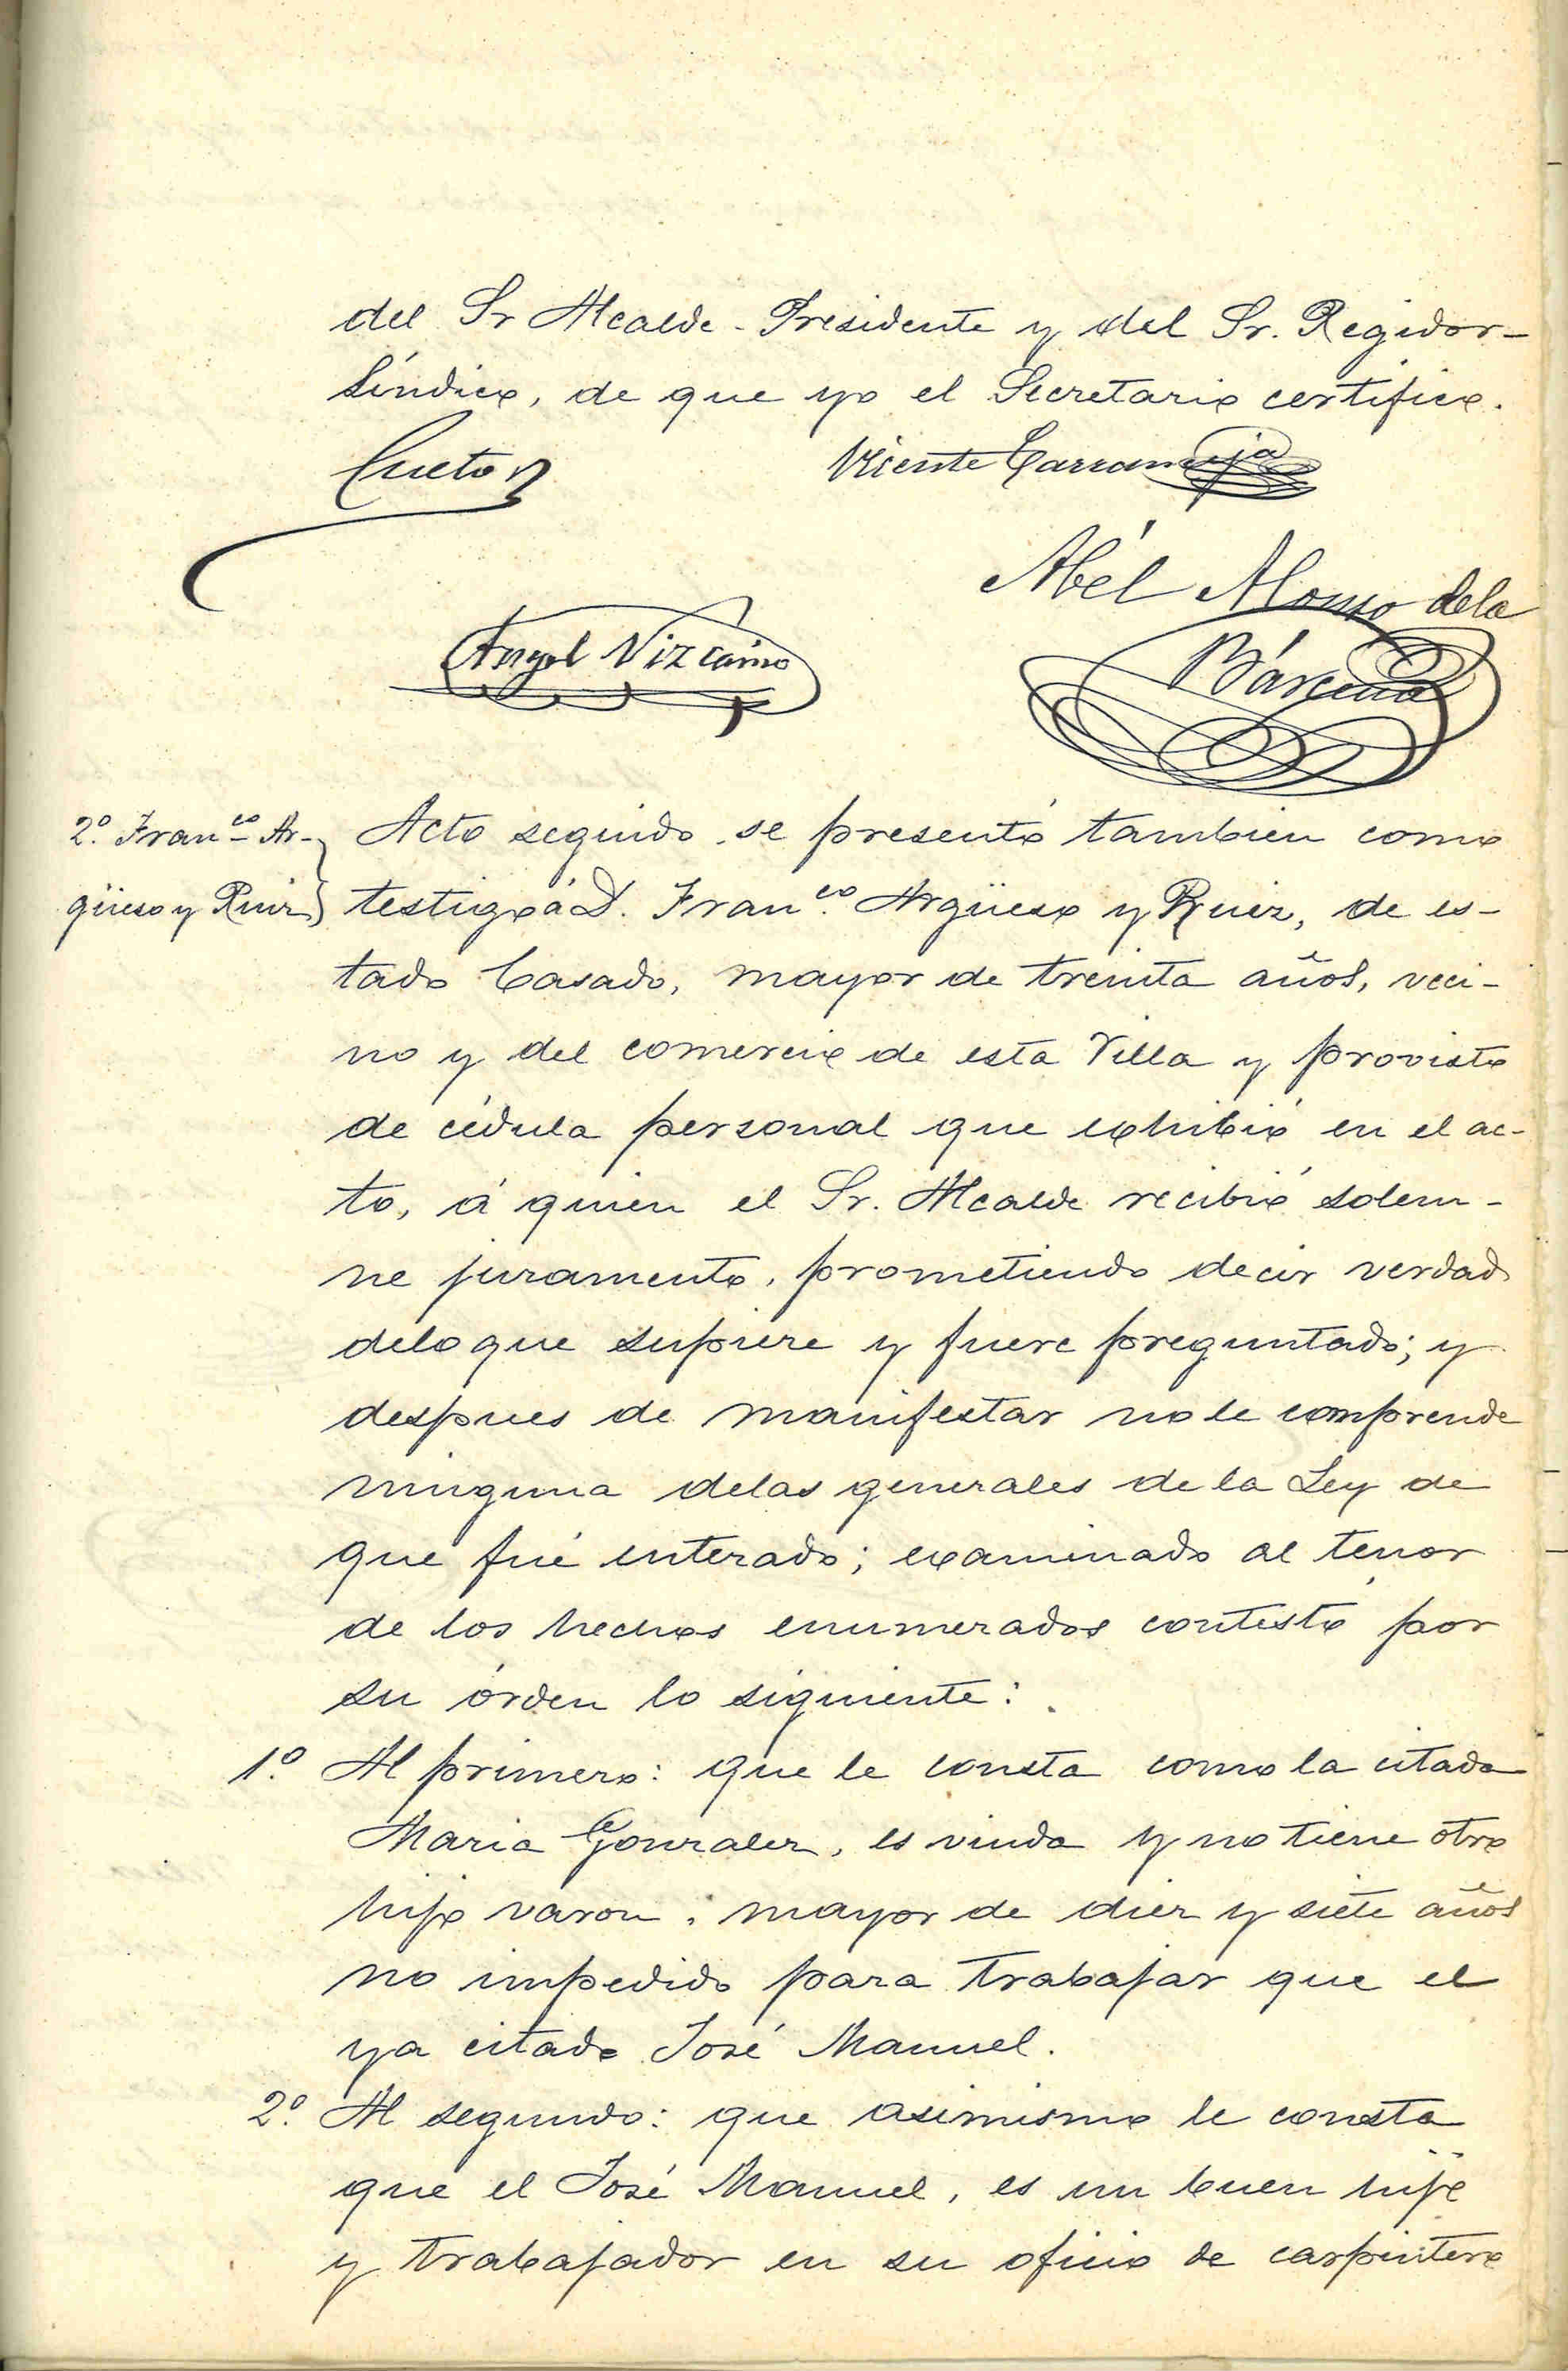 del Sr Alcalde-Presidente y del Sr. Regidor-
Síndico, de que yo el Secretario certifico.
Cueto
Vicente Carranceja
Abél Alonso de la
Bárcena
Angel Vizcaino
2º. Franco Ar-
güeso y Ruiz
Acto seguido se presentó tambien como
testigo á D. Franco. Argüeso y Ruiz, de es-
tado Casado, mayor de treinta años, veci-
no y del comercio de esta Villa y provisto
de cédula personal que exhibió en el ac-
to, á quien el Sr. Alcalde recibió solem-
ne juramento, prometiendo decir verdad
delo que supiere y fuere preguntado; y
despues de manifestar no le comprende
ninguna delas generales de la Ley de
que fué enterado; examinado al tenor
de los hechos enumerados contestó por
su órden lo siguiente:
1º. Al primero: que le consta como la citada
Maria Gonzalez, es viuda y no tiene otro
hijo varon, mayor de diez y siete años
no impedido para trabajar que el
ya citado José Manuel.
2º. Al segundo: que asimismo le consta
que el José Manuel, es un buen hijo
y trabajador en su oficio de carpintero